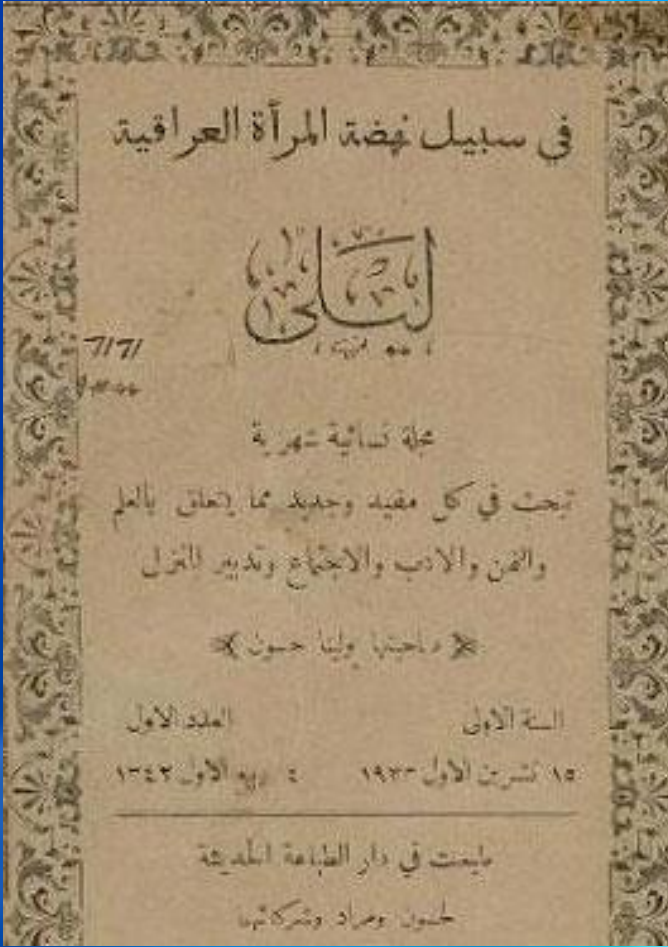 في سبيل نهضة المرآة العراقية
ليلى
مجلة نسائية شهرية
تبحث في كل مفيد وجديد مما يتعلق بالعلم
والفن والادب والاجتماع وتدبير المنزل
صاحبتها بولينا حسون
السنة الاولى العدد الاول
١٥ تشرين الاول ١٩٢٣ ٤ ربيع الاول ١٣٤٢
طبعت في دار الطباعة الحديثة
لحسون ومراد وشركائهما